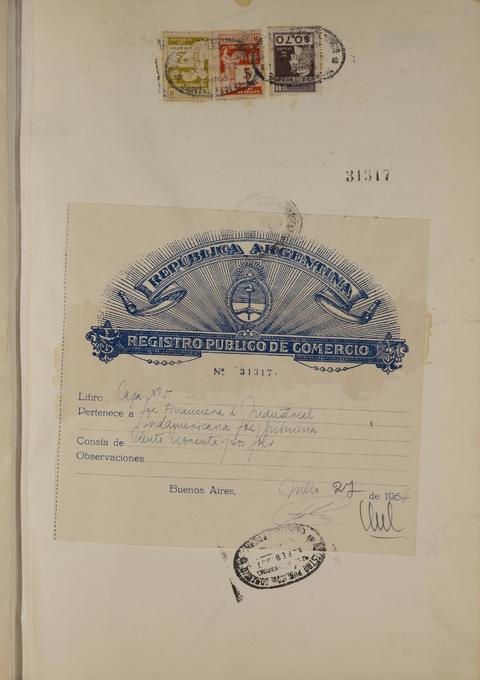 $0.70
31317
REPUBLICA ARGENTINA
REGISTRO PUBLICO DE COMERCIO
Nº 31317
Libro Caja Nº 5
Pertenece a Soc Financiera é Industrial
Sudamericana Soc Anónima
Consta de Ciento noventa y dos fols
Observaciones
Buenos Aires, Julio 27 de 195
REGISTRO PUBLICO DE COMERCIO
4-FEB